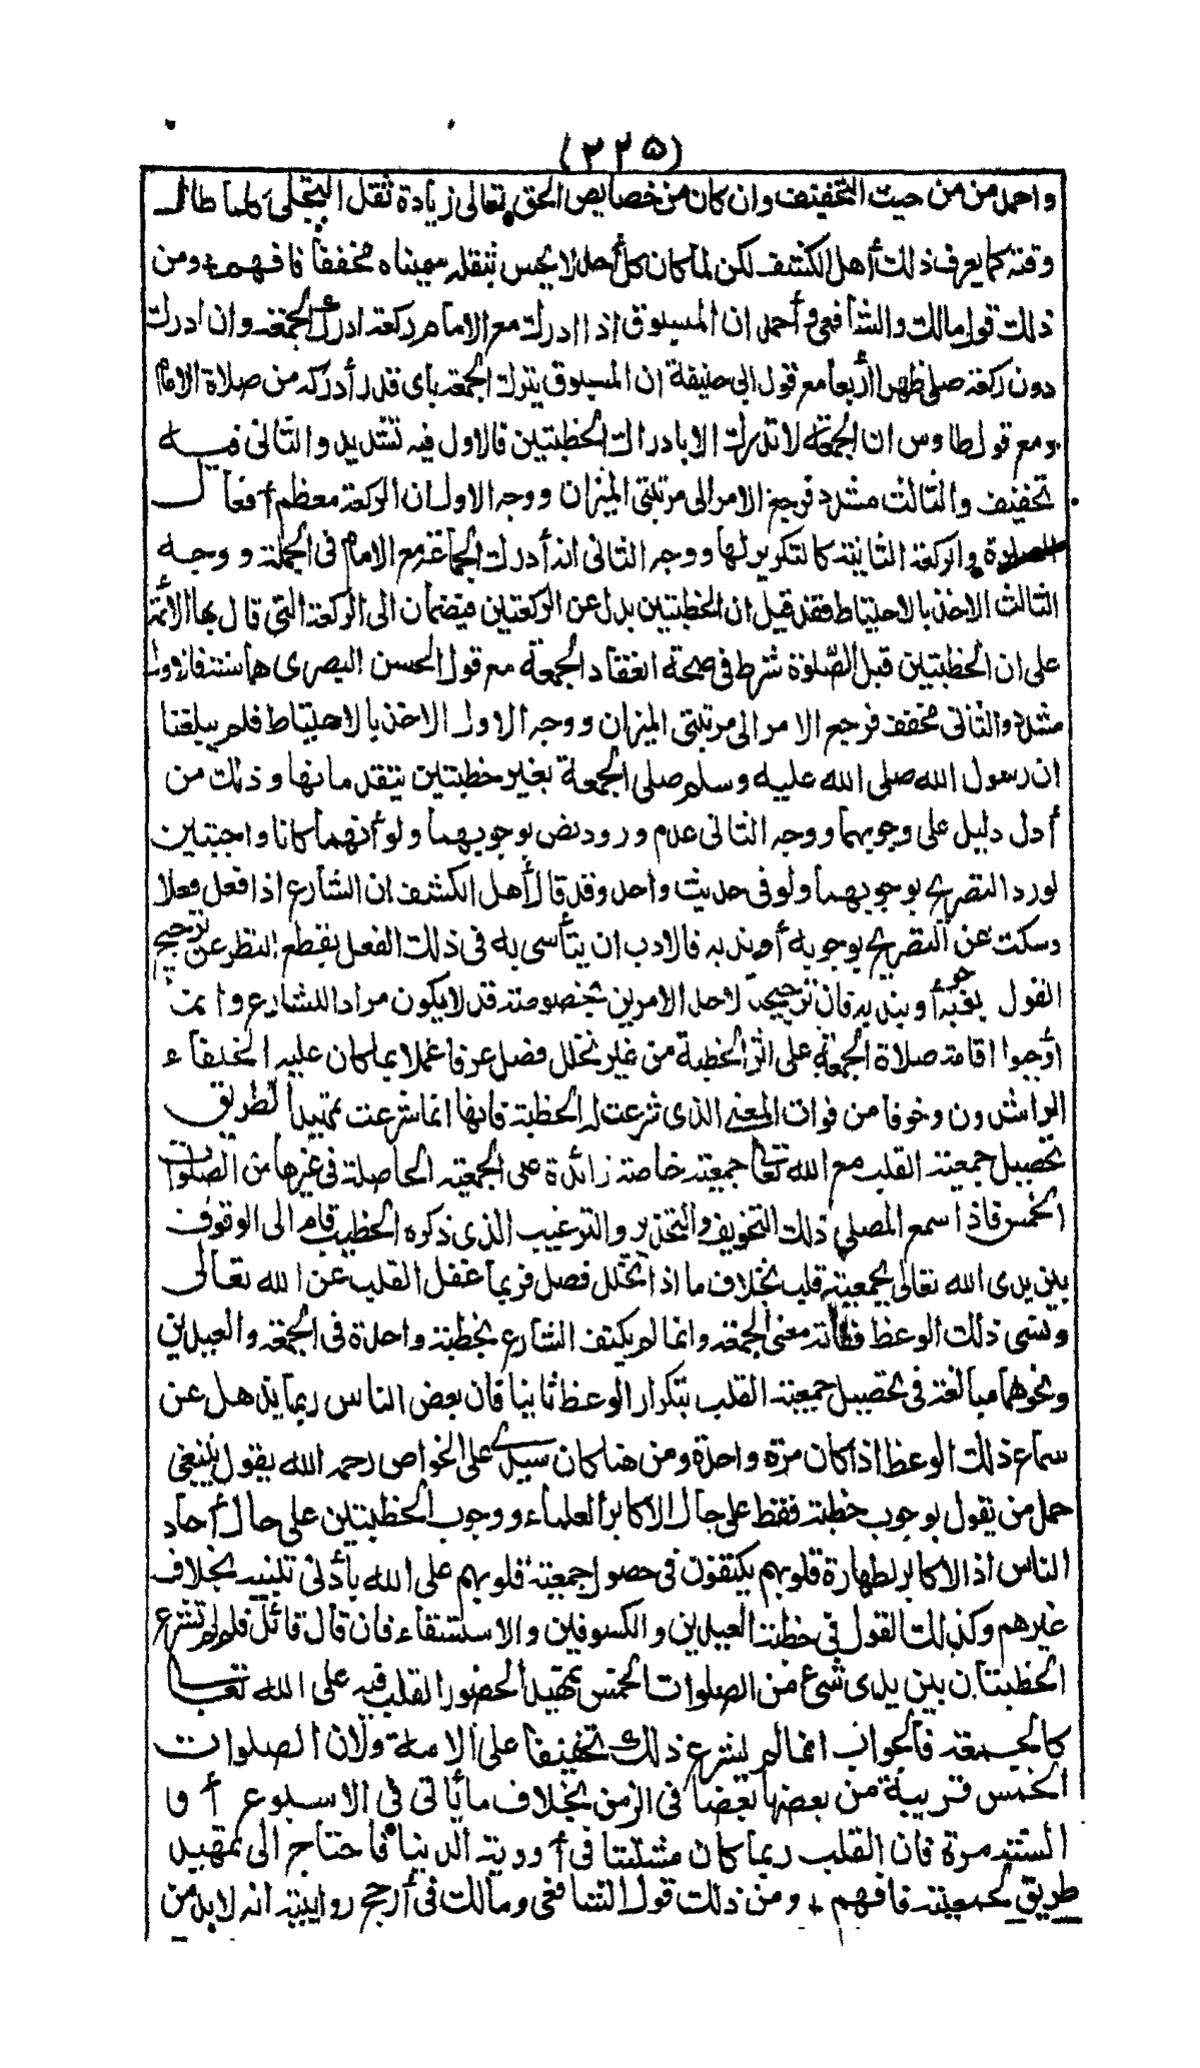 (٢٢٥)
واحمد من من حيث التخفيف وان كان من خصايص الحق تعالى زيادة ثقل التجلى كلما طال
وقته كما يعرف ذلك أهل الكشف لكن لما كان كل أحد لا يحس بثقله سميناه مخففا فافهم + ومن
ذلك قول مالك والشافعى وأحمد ان المسبوق اذا ادرك مع الامام ركعة ادرك الجمعة وان ادرك
دون ركعة صلى ظهرا أربعا مع قول ابى حنيفة ان المسبوق يدرك الجمعة باى قدر أدركه من صلاة الامام
ومع قول طاوس ان الجمعة لا تدرك الا بادراك الخطبتين فالاول فيه تشديد والثانى فيه
تخفيف والثالث مشدد فرجع الامر الى مرتبتى الميزان ووجه الاول ان الركعة معظم أفعال
الصلوة والركعة الثانية كالتكرير لها ووجه الثانى انه أدرك الجماعة مع الامام فى الجملة ووجه
الثالث الاخذ بالاحتياط فقد قيل ان الخطبتين بدل عن الركعتين فيضمان الى الركعة التى قال بها الأئمة
على ان الخطبتين قبل الصّلوة شرط فى صحة انعقاد الجمعة مع قول الحسن البصرى هما سنة فالاول
مشدد والثانى مخفف فرجع الامر الى مرتبتى الميزان ووجه الاول الاخذ بالاحتياط فلم يبلغنا
ان رسول الله صلى الله عليه وسلم صلى الجمعة بغير خطبتين يتقدمانها وذلك من
أدل دليل على وجوبهما ووجه الثانى عدم ورود نص بوجوبهما ولو أنهما كانا واجبتين
لورد التصريح بوجوبهما ولو فى حديث واحد وقد قال أهل الكشف ان الشارع اذا فعل فعلا
وسكت عن التصريح بوجوبه أو ندبه فالادب ان يتأسى به فى ذلك الفعل بقطع النظر عن ترجيح
القول بوجوبه أو بندبه فان ترجيحه لاحد الامرين بخصوصه قد لا يكون مراد الشارع وانما
أوجبوا اقامة صلاة الجمعة على اثر الخطبة من غير تخلل فصل عرفا عملا بما كان عليه الخلفاء
الراشدون وخوفا من فوات المعنى الذى شرعت له الخطبة فانها انما شرعت تمهيدا لطريق
تحصيل جمعية القلب مع الله تعالى جمعية خاصة زائدة على الجمعية الحاصلة فى غيرها من الصلوات
الخمس فاذا سمع المصلى ذلك التخويف والتحذير والترغيب الذى ذكره الخطيب قام الى الوقوف
بين يدى الله تعالى بجمعية قلب بخلاف ما اذا تخلل فصل فربما غفل القلب عن الله تعالى
ونسى ذلك الوعظ ففاته معنى الجمعة وانما لم يكتف الشارع بخطبة واحدة فى الجمعة والعيدين
ونحوهما مبالغة فى تحصيل جمعية القلب بتكرار الوعظ ثانيا فان بعض الناس ربما يذهل عن
سماع ذلك الوعظ اذا كان مرة واحدة ومن هنا كان سيدى على الخواص رحمه الله يقول ينبغى
حمل من يقول بوجوب خطبة فقط على حال الاكابر العلماء ووجوب الخطبتين على حال أحاد
الناس اذ الاكابر لطهارة قلوبهم يكتفون فى حصول جمعية قلوبهم على الله بأدنى تنبيه بخلاف
غيرهم وكذلك القول فى خطبة العيدين والكسوفين والاستسقاء فان قال قائل فلم لم تشرع
الخطبتان بين يدى شئ من الصلوات الخمس تمهيدا لحضور القلب فيه على الله تعالى
كالجمعة فالجواب انما لم يشرع ذلك تخفيفا على الامة ولان الصلوات
الخمس قريبة من بعضها بعضا فى الزمن بخلاف ما يأتى فى الاسبوع أو
السنة مرة فان القلب ربما كان مشتتا فى أودية الدنيا فاحتاج الى تمهيد
طريق لجمعيته فافهم + ومن ذلك قول الشافعى ومالك فى أرجح روايتيه انه لا بد من